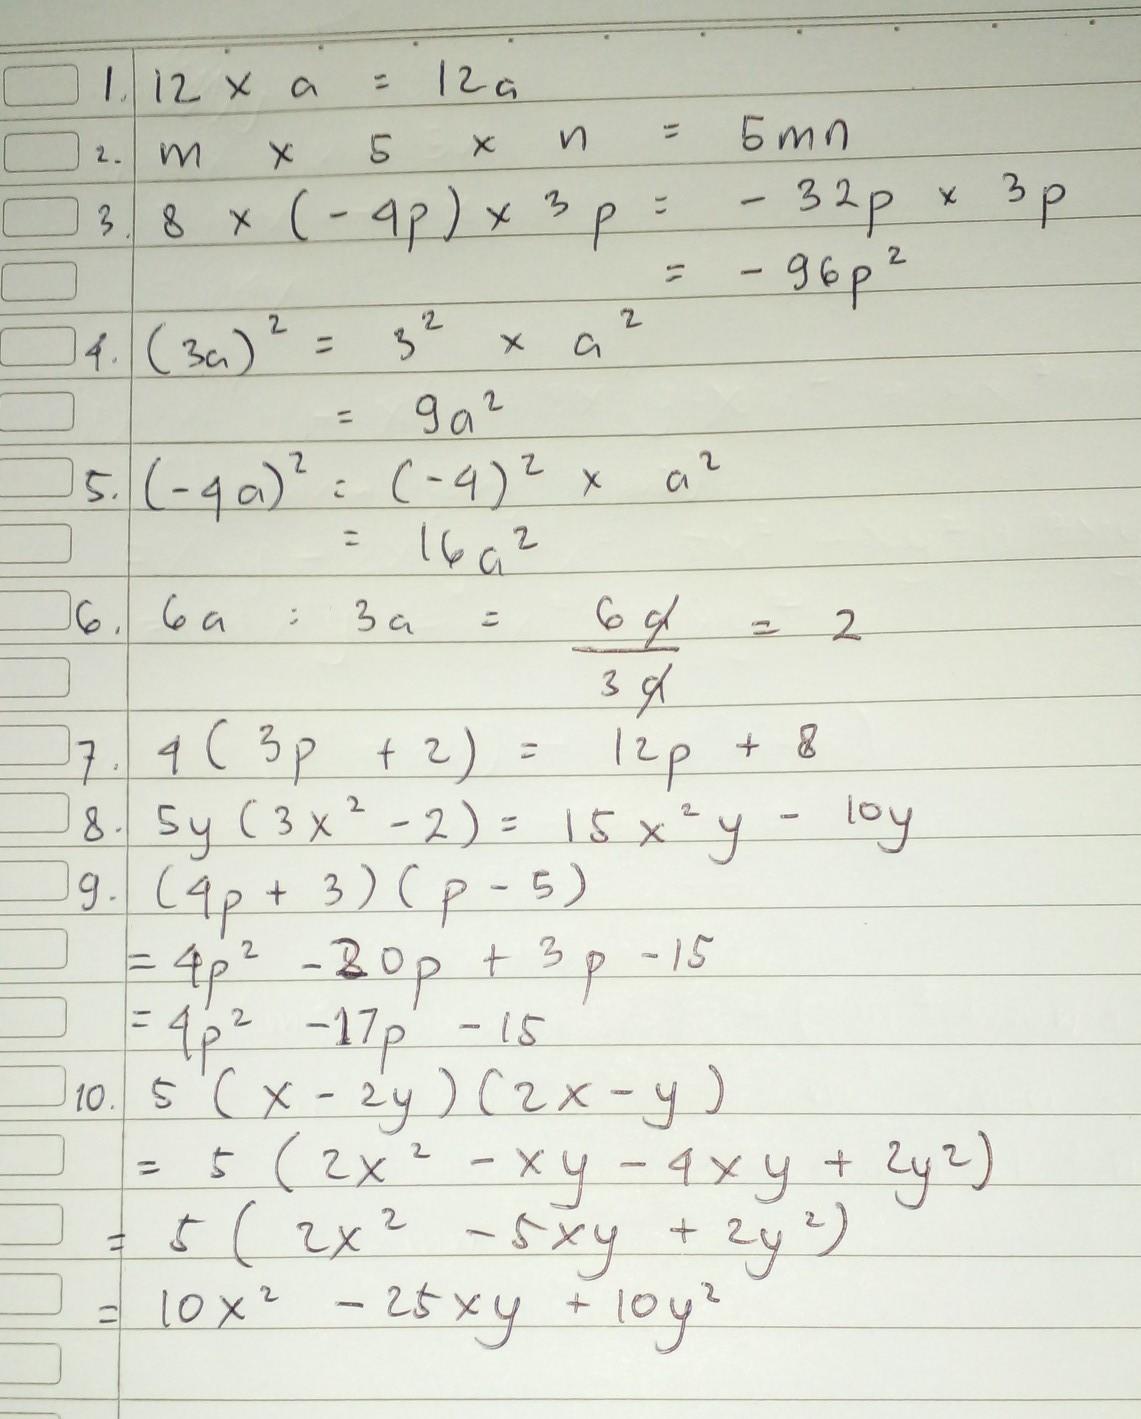 1. 12 × a = 12a
2. m × 5 × n = 5mn
3. 8 × (-4p) × 3p = - 32p × 3p
= - 96p²
4. (3a)² = 3² × a²
= 9a²
5. (-4a)² = (-4)² × a²
= 16a²
6. 6a : 3a = 6a/3a = 2
7. 4(3p + 2) = 12p + 8
8. 5y(3x² - 2) = 15x²y - 10y
9. (4p + 3)(p - 5)
= 4p² - 20p + 3p - 15
= 4p² - 17p - 15
10. 5(x - 2y)(2x - y)
= 5(2x² - xy - 4xy + 2y²)
= 5(2x² - 5xy + 2y²)
= 10x² - 25xy + 10y²